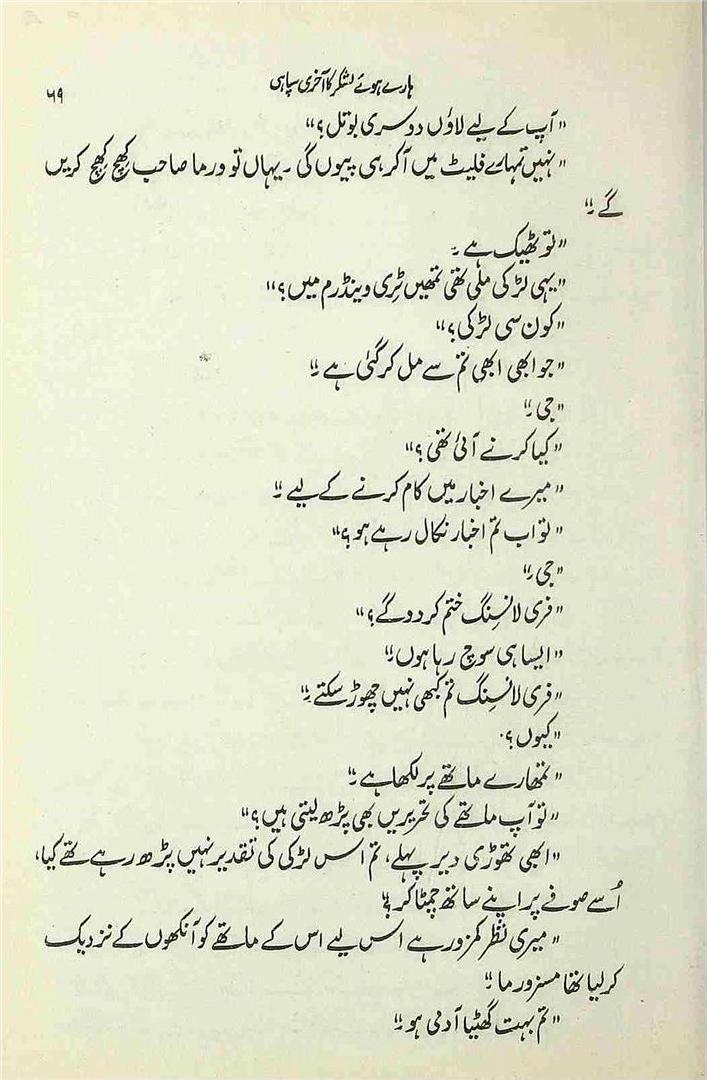 ہارے ہوئے لشکر کا آخری سپاہی
۶۹
"آپ کے لیے لاؤں دوسری بوتل؟"
"نہیں تمہارے فلیٹ میں آکر ہی پیوں گی ۔ یہاں تو ورما صاحب کھچ کھچ کریں
گے۔"
"تو ٹھیک ہے۔
"یہی لڑکی ملی تھی تمھیں ٹری وینڈرم میں؟"
"کون سی لڑکی؟"
"جو ابھی ابھی تم سے مل کر گئی ہے۔"
"جی۔"
"کیا کرنے آئی تھی؟"
"میرے اخبار میں کام کرنے کے لیے۔"
"تو اب تم اخبار نکال رہے ہو؟"
"جی۔"
"فری لانسنگ ختم کر دو گے؟"
"ایسا ہی سوچ رہا ہوں۔"
"فری لانسنگ تم کبھی نہیں چھوڑ سکتے۔"
"کیوں؟.
"تمھارے ماتھے پر لکھا ہے۔"
"تو آپ ماتھے کی تحریریں بھی پڑھ لیتی ہیں؟"
"ابھی تھوڑی دیر پہلے، تم اس لڑکی کی تقدیر نہیں پڑھ رہے تھے کیا،
اُسے صوفے پر اپنے ساتھ چمٹا کر؟"
"میری نظر کمزور ہے اس لیے اس کے ماتھے کو آنکھوں کے نزدیک
کر لیا تھا مسز ورما۔"
"تم بہت گھٹیا آدمی ہو۔"